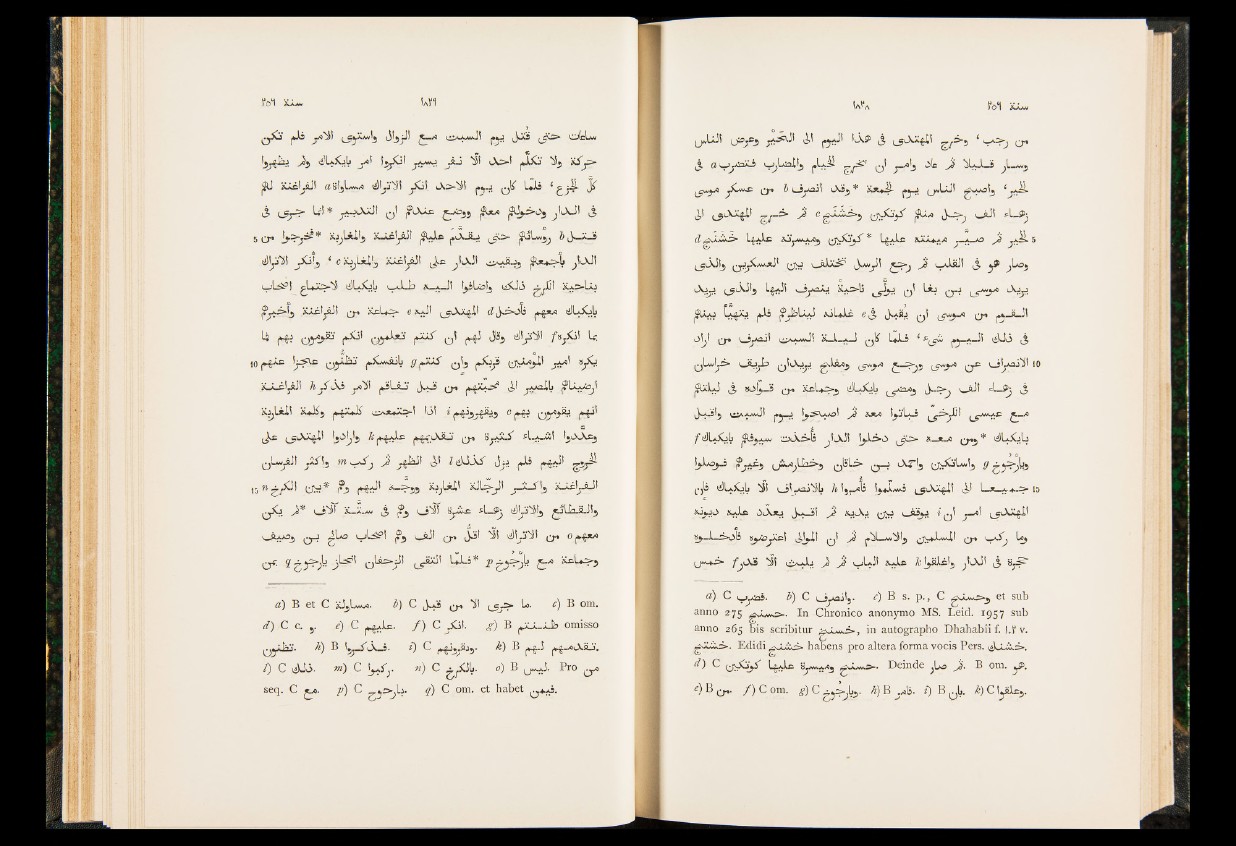 ١٨٣٨ سنة ٢٥٦
من رجب، وخرج المهتدى فى هذا اليوم الى الحَيْر وعرض الناس
وسار قليلا ثم عاد وامر ان تخرج الخيام والمضارب فتضرب a فى
الحير، واصبح الناس يوم الجمعة *وقد انصرف b من عسكر موسى
زهاء الف رجل منهم كوتكين وخشنج c ثم خرج المهتدى الى
5 الحير ثم صيّر ميمنته عليها *كوتكين وميسرته عليها خشنج d
وصار هو فى القلب ثم رجع الرسل تختلف بين العسكرين والذى
يريد موسى بن بغا ان يولّى ناحية ينصرف اليها والذى يريد
القوم من موسى ان يُقبل فى e غلمانه ليناظرهم فلم يتهيّأ بينهم
فى ذلك اليوم شىء، فلمّا كان ليلة السبت انصرف من اراد
10 الانصراف عن موسى ورجع موسى ومفلح يريدان طريق خراسان
فى زهاء الف رجل ومضى بايكباك وجماعة من قوّاده فى ليلتهم
مع عيسى الكرخى فباتوا معه ثم اصبحوا يوم السبت واقبل
بايكباك *ومن معه حتى دخلوا الدار فأخذت سيوفهم بايكباك f
ويارجوخ g واساتكين واحمد بن خاقان وخطارمش وغيرهم فوصلوا
15 جميعا الى المهتدى فسلّموا فأمروا h بالانصراف الّا بايكباك فإن
المهتدى امر ان i يوقف بين يديه ثم اقبل يعدّد عليه ذنوبه
وما ركب من المسلمين والاسلام ثم ان الموالى اعترضوه فأدخلوه
حجرة فى الدار واغلقوا k عليه الباب ثم لم يلبث الّا قدر f خمس
a) C فضرب. b) C وانصرف. c) B s. p., C et sub
anno 275 . In Chronico anonymo MS. Leid. 1957 sub
anno 265 bis scribitur , in autographo Dhahabii f. ١٠٢ v.
. Edidi خشنج habens pro altera forma vocis Pers. خشنك.
d) C كوتكين عليها وميسرة . Deinde ثم صار. B om. هو.
e) B من. f) C om. g) C . h) B فامر. i) B بان. k) C وغلقوا.
١٨٣٩ سنة ٢٥٦
ساعات حتى قُتل يوم السبت مع الزوال واستوى الامر فلم تكن
حركة ولا تكلّم احد الّا نفر يسير انكروا امر بايكباك ولم يظهروا
كلّ الجزع، فلمّا كان يوم الاحد انكر الاتراك مساواة a الفراغنة لهم
فى الدار ودخولهم معهم ووضح عندهم ان التدبير *انما جرى فى
5 قتل b رؤسائهم حتى يقدّم عليهم الفراغنة والمغاربة *فخرجوا من
الدار بأجمعهم وبقيت الدار على الفراغنة والمغاربة c، وأنكر الاتراك
بناحية الكرخ ذلك واضافوا اليه طلب بايكباك لاجتماع اصحاب
بايكباك معهم فأدخل d المهتدى اليه e جماعة من الفراغنة وأخبرهم
بما انكره f الاتراك وقال لهم ان كنتم تعلمون انكم تقومون بهم فما
10 يكره امير المؤمنين قربكم وان كنتم g بأنفسكم تظنّون عجزا عنهم
ارضيناهم بالمصير الى محبّتهم من قبل تفاقم الامر فذكر h الفراغنة
انهم يقومون بهم e ويقهرونهم i اذا اجتمعت كلمتهم وكلمة المغاربة
وعدّدوا اشياء كثيرة من تقديمهم عليهم k وارادوا المهتدى على
الخروج اليهم فلم يزل كذلك l الى الظهر ثم ركب m واكثر الفرسان
15 الفراغنة واكثر الرجّالة المغاربة ووجّه اليهم وهم *بين الكرخ n
والقطائع والاتراك زهاء عشرة آلاف وهم فى ستّة آلاف *لم يكن
معهم o من الاتراك الّا اقلّ من الف وهم اصحاب صالح بن وصيف
وجماعة مع يارجوخ p *فلمّا التقى الزحفان انحاز يارجوخ q بمن
a) B et C مساولة. b) C ما جرى الا من قبل. c) B om.
d) C c. و. e) C عليهم. f) C انكر. g) B omisso
تظنون. h) B فذكروا. i) C ودفرونهم. k) B تقدمهم لهم.
l) C ذلك. m) C ركبوا. n) C بالكرخ. o) B ليس. Pro من
seq. C مع. p) C يارجوح. q) C om. et habet فيمن.